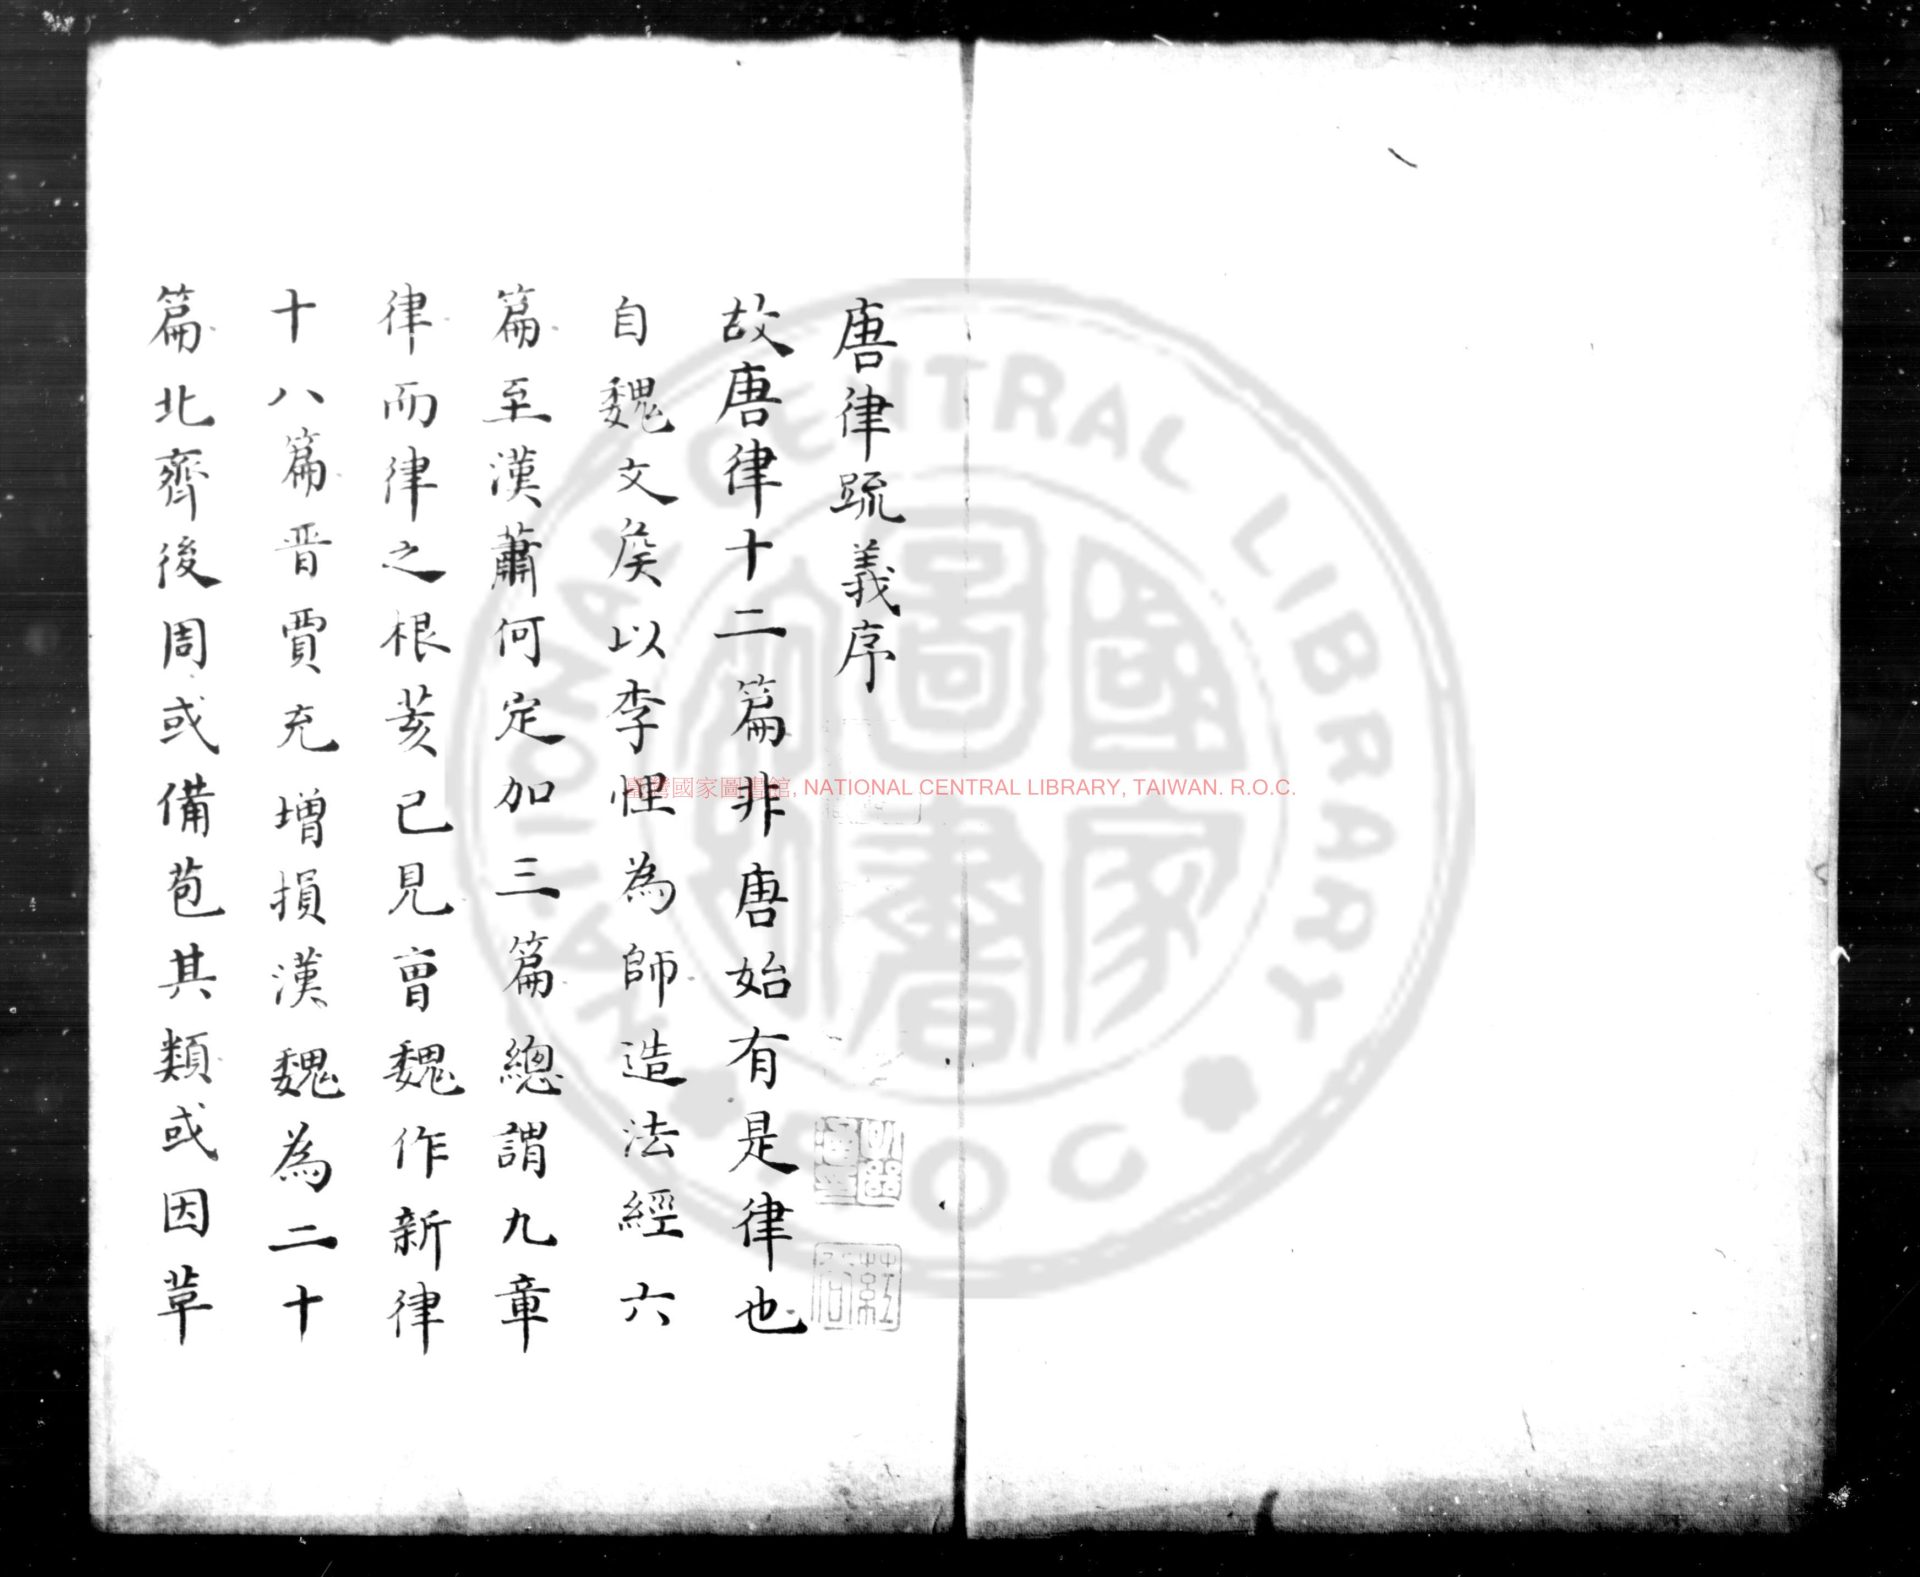 唐律疏義序
故唐律十二篇非唐始有是律也
自魏文矦以李悝為師造法經六
篇至漢蕭何定加三篇總謂九章
律而律之根荄已見曹魏作新律
十八篇晋賈充增損漢魏為二十
篇北齊後周或備苞其類或因草
臺灣國家圖書館, NATIONAL CENTRAL LIBRARY, TAIWAN. R.O.C.
NATIONAL CENTRAL LIBRARY
R.O.C.
國家圖書館